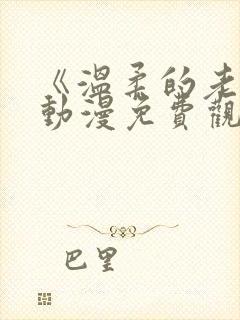 《溫柔的老
動漫免費觀
巴里